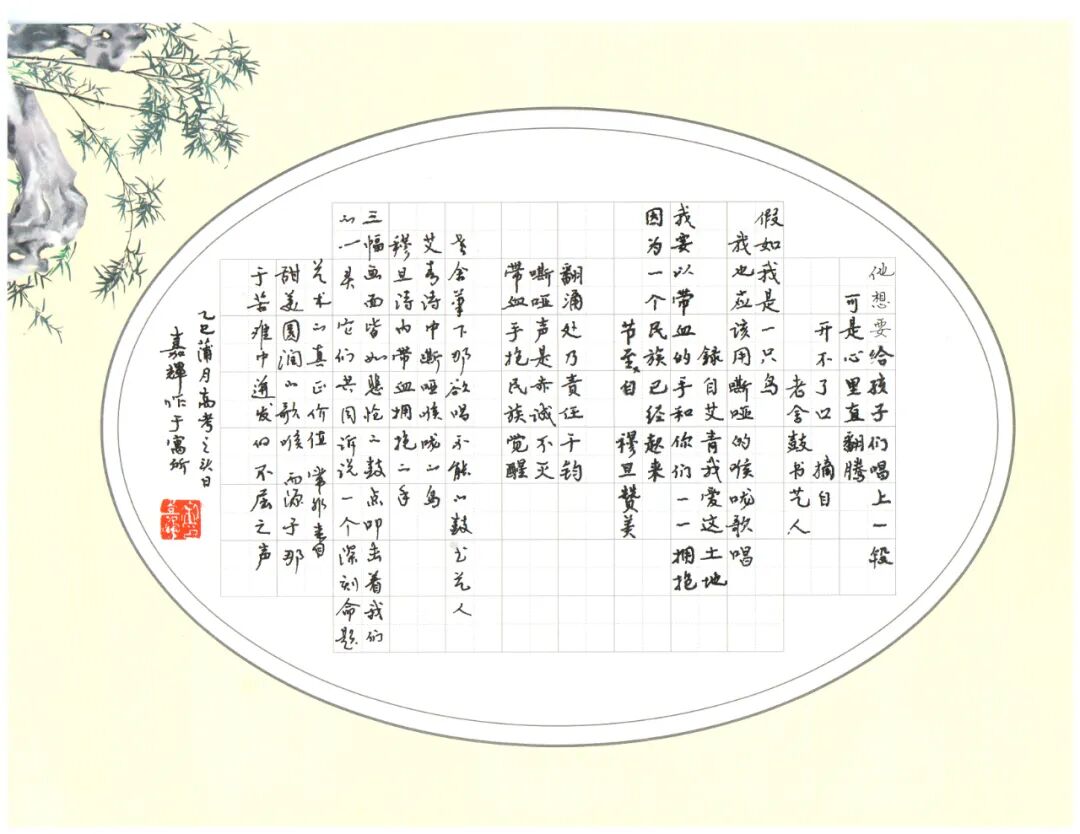 他想要给孩子们唱上一段
可是心里直翻腾
开不了口 摘自
老舍鼓书艺人
假如我是一只鸟
我也应该用嘶哑的喉咙歌唱
録自艾青我爱这土地
我要以带血的手和你们一一拥抱
因为一个民族已经起来
节选自 穆旦赞美
翻涌处乃责任千钧
嘶哑声是赤诚不灭
带血手抱民族觉醒
老舍笔下那欲唱不能的鼓书艺人
艾青诗中嘶哑喉咙的鸟
穆旦诗内带血拥抱之手
三幅画面皆如悲怆之鼓点叩击着我们
的心灵 它们共同诉说一个深刻命题
艺术的真正价值 常非来自
甜美圆润的歌喉 而源于那
于苦难中迸发的不屈之声
乙巳蒲月高考之次日
嘉輝作于寓所